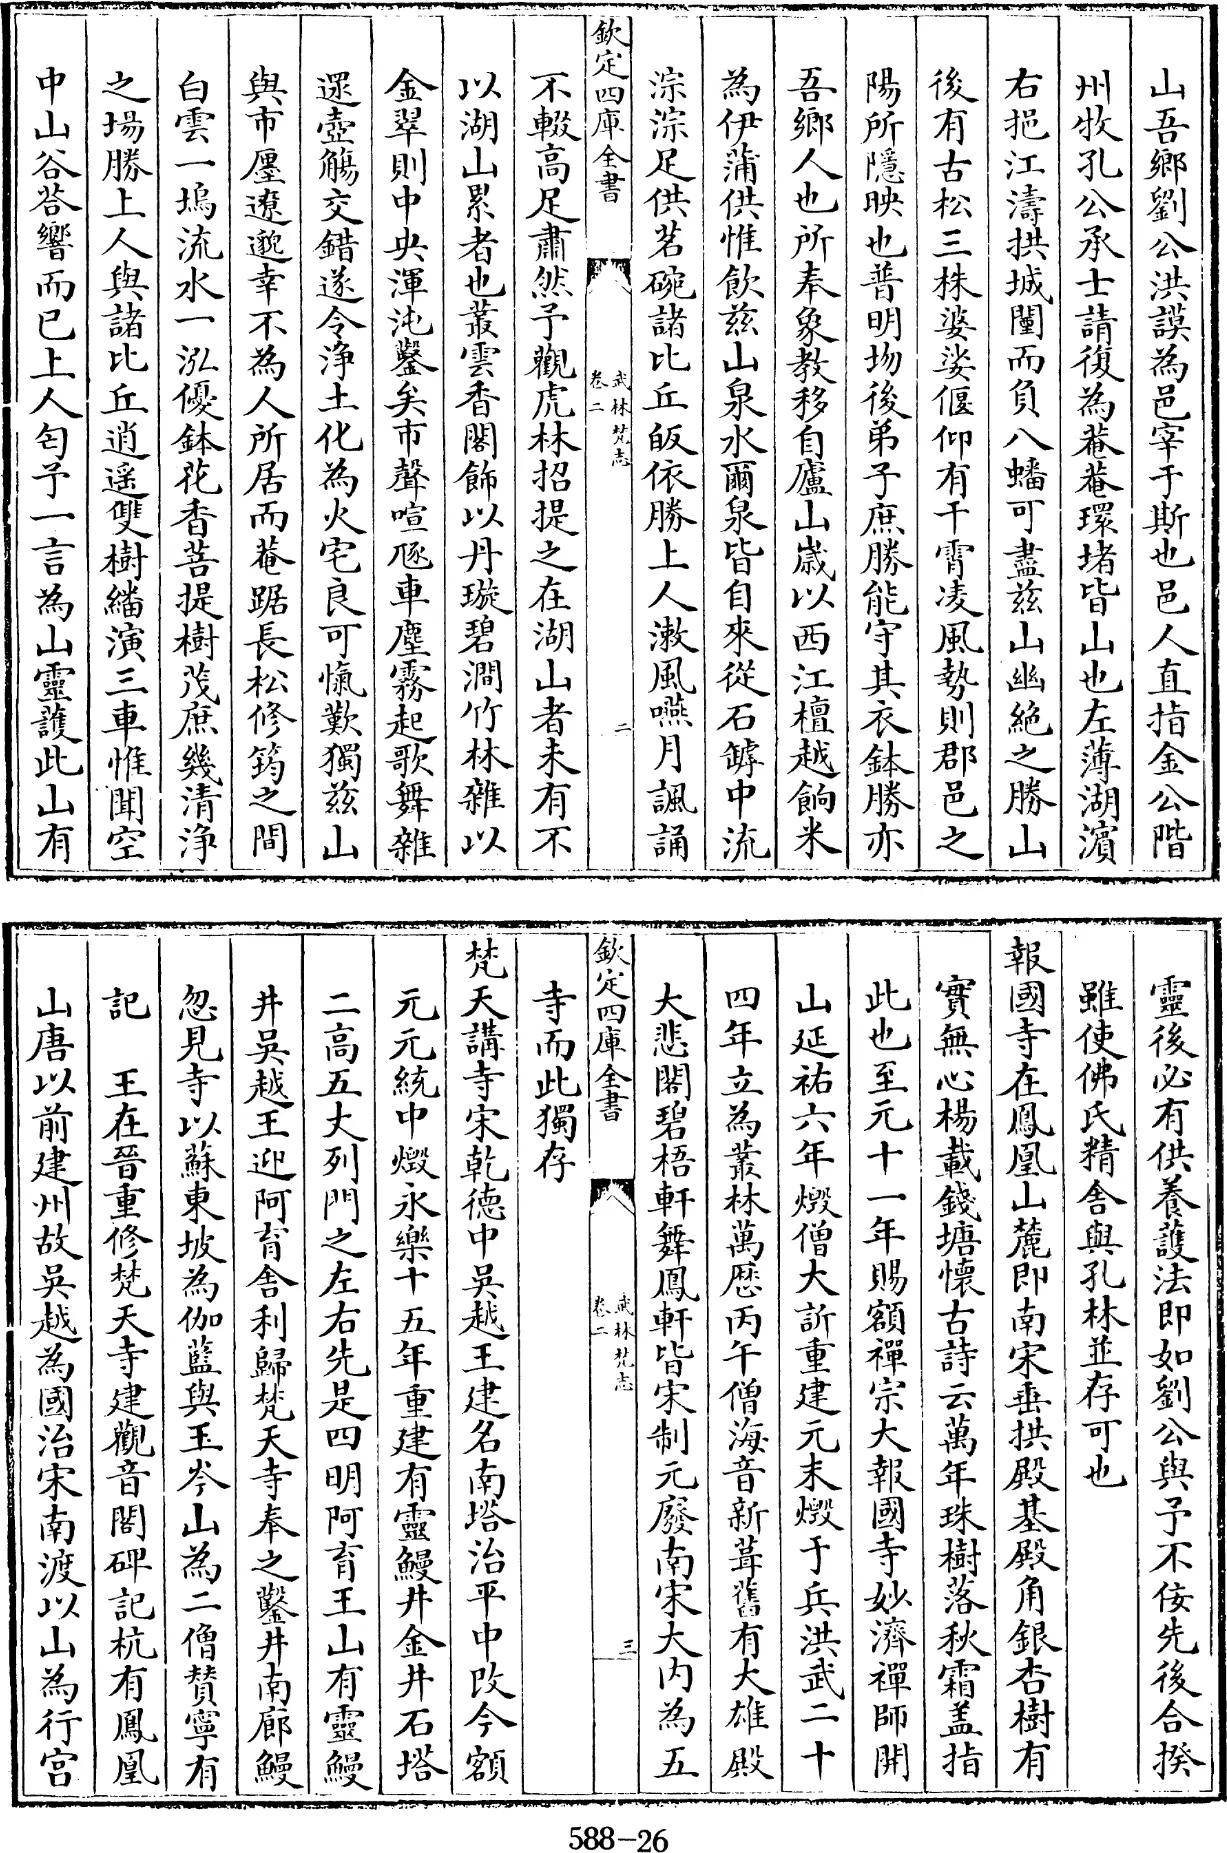 山吾鄉劉公洪謨為邑宰于斯也邑人直指金公階
州牧孔公承士請復為菴菴環堵皆山也左薄湖濱
右挹江濤拱城闉而負八蟠可盡兹山幽絶之勝山
後有古松三株婆娑偃仰有干霄凌風勢則郡邑之
陽所隱映也普明圽後弟子庶勝能守其衣鉢勝亦
吾鄉人也所奉象教移自廬山嵗以西江檀越餉米
為伊蒲供惟飲兹山泉水爾泉皆自來從石罅中流
淙淙足供茗碗諸比丘皈依勝上人漱風嚥月諷誦
欽定四庫全書
武林梵志
卷二
二
不輟高足肅然予觀虎林招提之在湖山者未有不
以湖山累者也叢雲香閣飾以丹璇碧澗竹林雜以
金翠則中央渾沌鑿矣市聲喧豗車塵霧起歌舞雜
遝壺觴交錯遂令淨土化為火宅良可愾歎獨兹山
與市廛遼邈幸不為人所居而菴踞長松修筠之間
白雲一塢流水一泓優鉢花香菩提樹茂庶幾清淨
之場勝上人與諸比丘逍遥雙樹繙演三車惟聞空
中山谷荅響而已上人匄予一言為山靈護此山有
靈後必有供養護法即如劉公與予不佞先後合揆
雖使佛氏精舍與孔林並存可也
報國寺在鳳凰山麓即南宋垂拱殿基殿角銀杏樹有
實無心楊載錢塘懷古詩云萬年珠樹落秋霜盖指
此也至元十一年賜額禪宗大報國寺妙濟禪師開
山延祐六年燬僧大訢重建元末燬于兵洪武二十
四年立為叢林萬厯丙午僧海音新葺舊有大雄殿
大悲閣碧梧軒舞鳳軒皆宋制元廢南宋大内為五
欽定四庫全書
武林梵志
卷二
三
寺而此獨存
梵天講寺宋乾德中吳越王建名南塔治平中改今額
元元統中燬永樂十五年重建有靈鰻井金井石塔
二高五丈列門之左右先是四明阿育王山有靈鰻
井吳越王迎阿育舍利歸梵天寺奉之鑿井南廊鰻
忽見寺以蘇東坡為伽藍與玉岑山為二僧贊寧有
記　王在晉重修梵天寺建觀音閣碑記杭有鳳凰
山唐以前建州故吳越為國治宋南渡以山為行宫
588-26